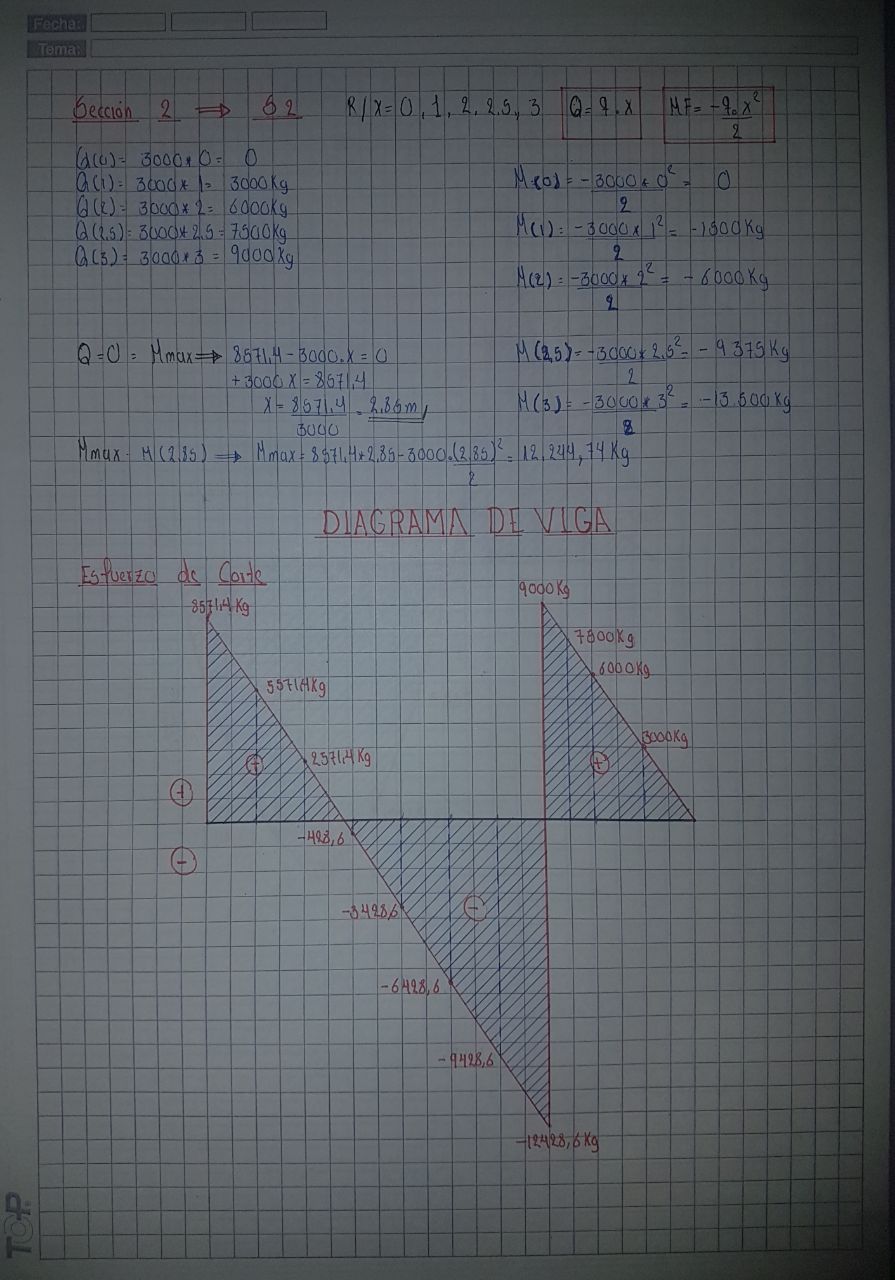 Fecha:
Tema:
Sección 2 ⟹ S2 R/X=0, 1, 2, 2.5, 3 Q= q.x MF= -q.x²/2
Q(0)= 3000*0= 0
Q(1)= 3000*1= 3000Kg
Q(2)= 3000*2= 6000Kg
Q(2,5)=3000*2,5=7500Kg
Q(3)= 3000*3= 9000Kg
M(0)= -3000*0²/2= 0
M(1)= -3000*1²/2= -1500Kg
M(2)= -3000*2²/2= -6000Kg
M(2,5)= -3000*2,5²/2= -9375Kg
M(3)= -3000*3²/2= -13.500Kg
Q=0= Mmax⟹ 8571,4-3000.x=0
+3000x=8571,4
x=8571,4/3000=2,85m
Mmax= M(2,85) ⟹ Mmax=8571,4*2,85-3000.(2,85)²/2=12,244,74Kg
DIAGRAMA DE VIGA
Esfuerzo de Corte
8571,4Kg
9000Kg
7500Kg
6000Kg
5571,4Kg
3000Kg
2571,4Kg
+
+
+
-428,6
-
-3428,6
-
-6428,6
-9428,6
-12428,6Kg
TOP